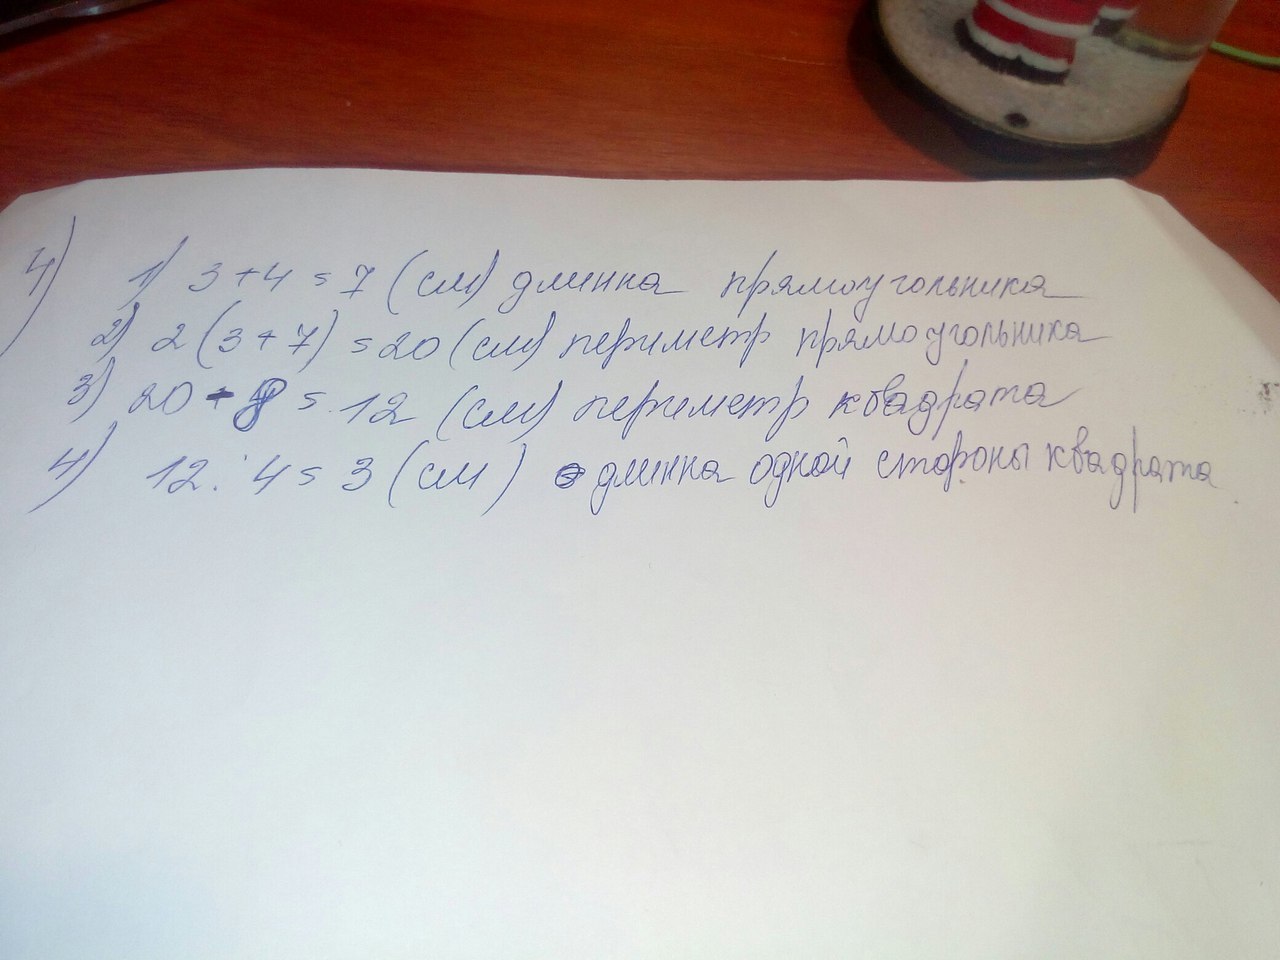 4) 1) 3 + 4 = 7 (см) длинна прямоугольника
2) 2 (3 + 7) = 20 (см) периметр прямоугольника
3) 20 - 8 = 12 (см) периметр квадрата
4) 12 : 4 = 3 (см) длинна одной стороны квадрата